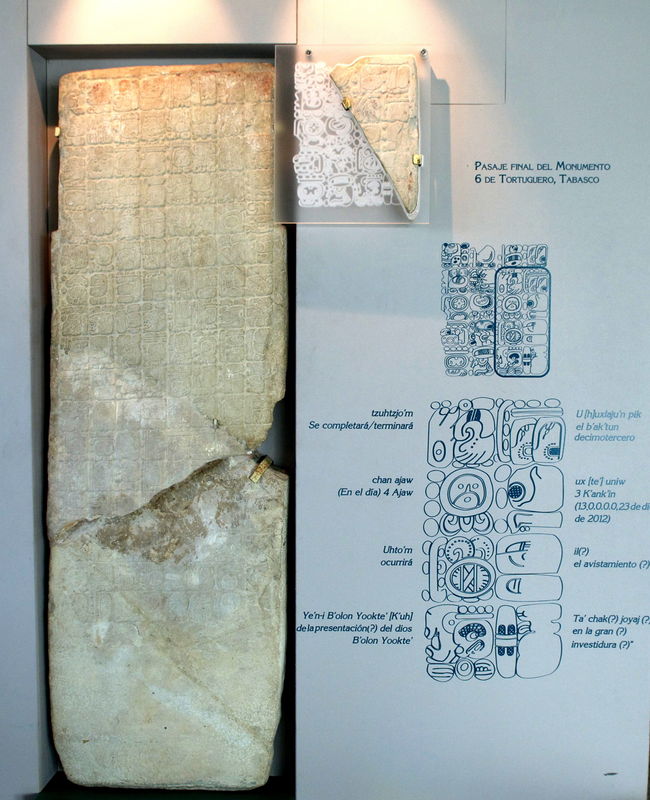 Pasaje final del Monumento
6 de Tortuguero, Tabasco
tzuhtzjo'm
Se completará/terminará
U [h]uxlaju'n pik
el b'ak'tun
decimotercero
chan ajaw
(En el día) 4 Ajaw
ux [te'] uniw
3 K'ank'in
(13,0.0.0.0,23 de di
de 2012)
Uhto'm
ocurrirá
il(?)
el avistamiento (?)
Ye'n-i B'olon Yookte' [K'uh]
de la presentación(?) del dios
B'olon Yookte'
Ta' chak(?) joyaj (?)
en la gran (?)
investidura (?)"